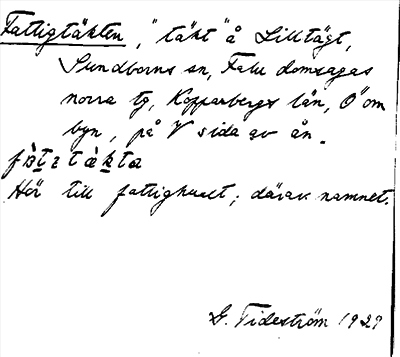 Fattigtäkten, "täkt" å Lilltägt,
Sundborns sn, Falu domsagas
norra tg, Kopparbergs län, Ö om
byn, på V sida av ån.
Hör till fattighuset; därav namnet.
G. Tideström 1929